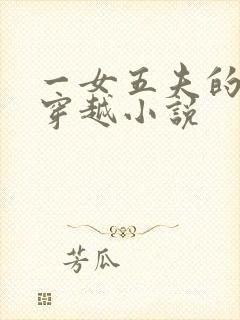 一女五夫的
穿越小說
芳瓜